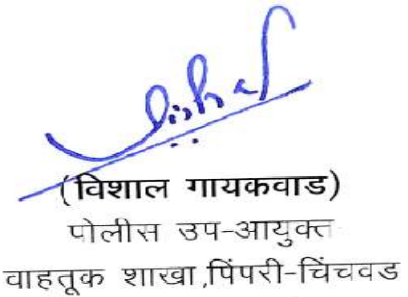 (विशाल गायकवाड)
पोलीस उप-आयुक्त
वाहतूक शाखा,पिंपरी-चिंचवड